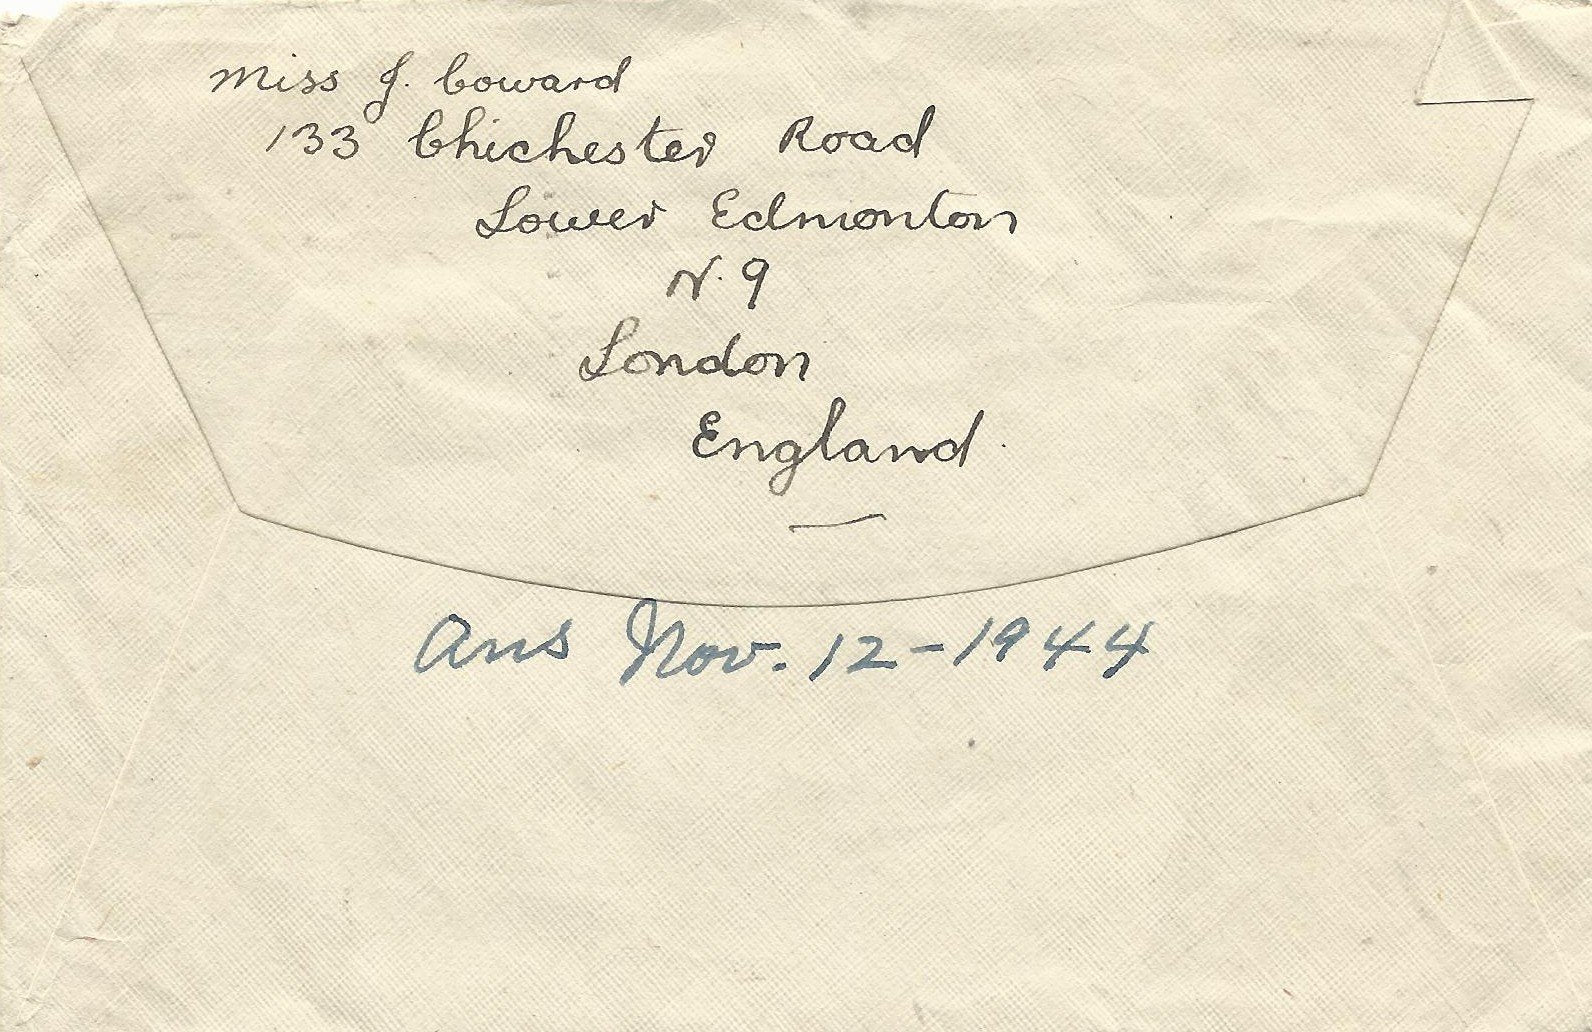 Miss J. Coward
133 Chichester Road
Lower Edmonton
N. 9
London
England.
Ans Nov. 12-1944